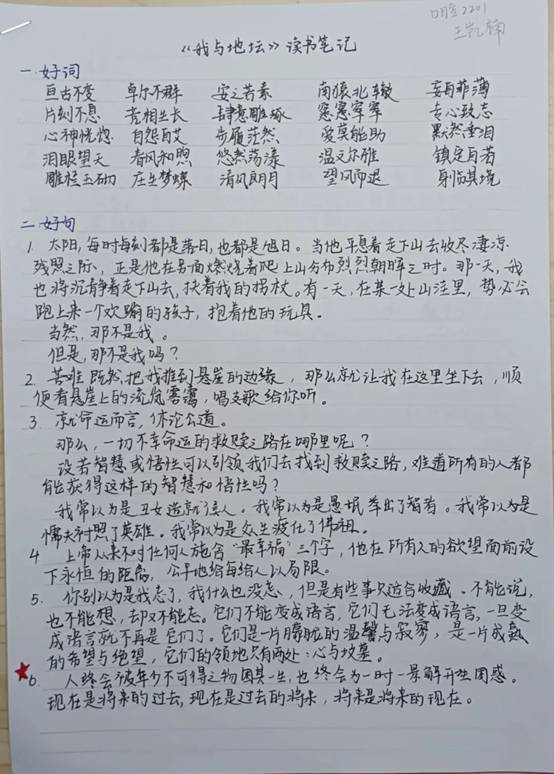 口腔2201
《我与地坛》读书笔记
一 好词
亘古不变 卓尔不群 安之若素 南辕北辙 妄自菲薄
片刻不息 亮相生长 肆意雕琢 窸窸窣窣 专心致志
心神恍惚 自怨自艾 步履茫然 爱莫能助 默然垂泪
泪眼望天 春风和煦 悠然荡漾 温文尔雅 镇定自若
雕栏玉砌 庄生梦蝶 清风朗月 望风而退 身临其境
二 好句
1. 太阳,每时每刻都是落日,也都是旭日。当他平息着走下山去收尽凄凉
残照之际,正是他在另一面燃烧着爬上山分布烈烈朝晖之时。那一天,我
也将沉静着走下山去,扶着我的拐杖。有一天,在某一处山洼里,势必会
跑上来一个欢蹦的孩子,抱着他的玩具。
当然,那不是我。
但是,那不是我吗?
2. 苦难既然把我推到悬崖的边缘,那么就让我在这里坐下去,顺
便看悬崖上的流岚雾霭,唱支歌给你听。
3. 就命运而言,休论公道。
那么,一切不幸命运的救赎之路在哪里呢?
设若智慧或悟性可以引领我们去找到救赎之路,难道所有的人都
能获得这样的智慧和悟性吗?
我常以为是丑女造就了美人。我常以为是愚氓举出了智者。我常以为是
懦夫衬照了英雄。我常以为是众生度化了佛祖。
4 上帝从来不对任何人施舍“最幸福”三个字,他在所有人的欲望面前设
下永恒的距离,公平地给每一个人以局限。
5. 你别以为是我忘了,我什么也没忘,但是有些事只适合收藏。不能说,
也不能想,却又不能忘。它们不能变成语言,它们无法变成语言,一旦变
成语言就不再是它们了。它们是一片朦胧的温馨与寂寥,是一片成熟
的希望与绝望,它们的领地只有两处:心与坟墓。
6. 人终会被年少不可得之物困其一生,也终会为一时一景解开一生困惑。
现在是将来的过去,现在是过去的将来,将来是将来的现在。